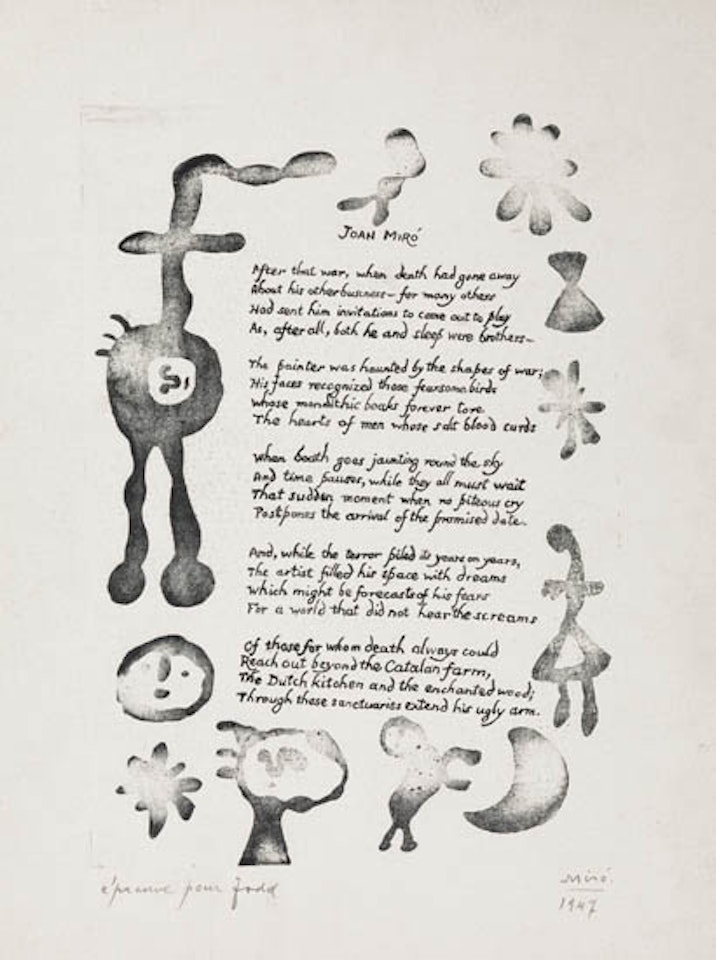 JOAN MIRÓ
After that war, when death had gone away
About his other business – for many others
Had sent him invitations to come out to play
As, after all, both he and sleep were brothers –
The painter was haunted by the shapes of war;
His faces recognized those fearsome birds
whose monolithic beaks forever tore
The hearts of men whose salt blood curds
When death goes jaunting round the sky
And time pauses, while they all must wait
That sudden moment when no piteous cry
Postpones the arrival of the promised date.
And, while the terror piled its years on years,
The artist filled his space with dreams
which might be forecasts of his fears
For a world that did not hear the screams
Of those for whom death always could
Reach out beyond the Catalan farm,
The Dutch kitchen and the enchanted wood;
Through these sanctuaries extend his ugly arm.
épreuve pour Todd
Miró.
1947